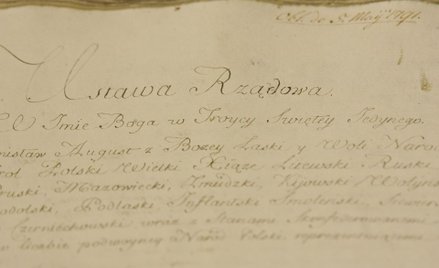 de 3. Maij 1791.
Ustawa Rządowa.
W Imie Boga w Troycy Swiętey Jedynego.
nisław August z Bozey Łaski y Woli Narod
rol Polski Wielki Xiąże Litewski Ruski
Pruski, Mazowiecki, Zmudzki, Kijowski Wołyns
odolski, Podlaski Inflantski Smolenski, Siewier
Czerniechowski wraz z Stanami Skonfederowanemi
w liczbie podwoyney Narod Polski reprezentuiącemi